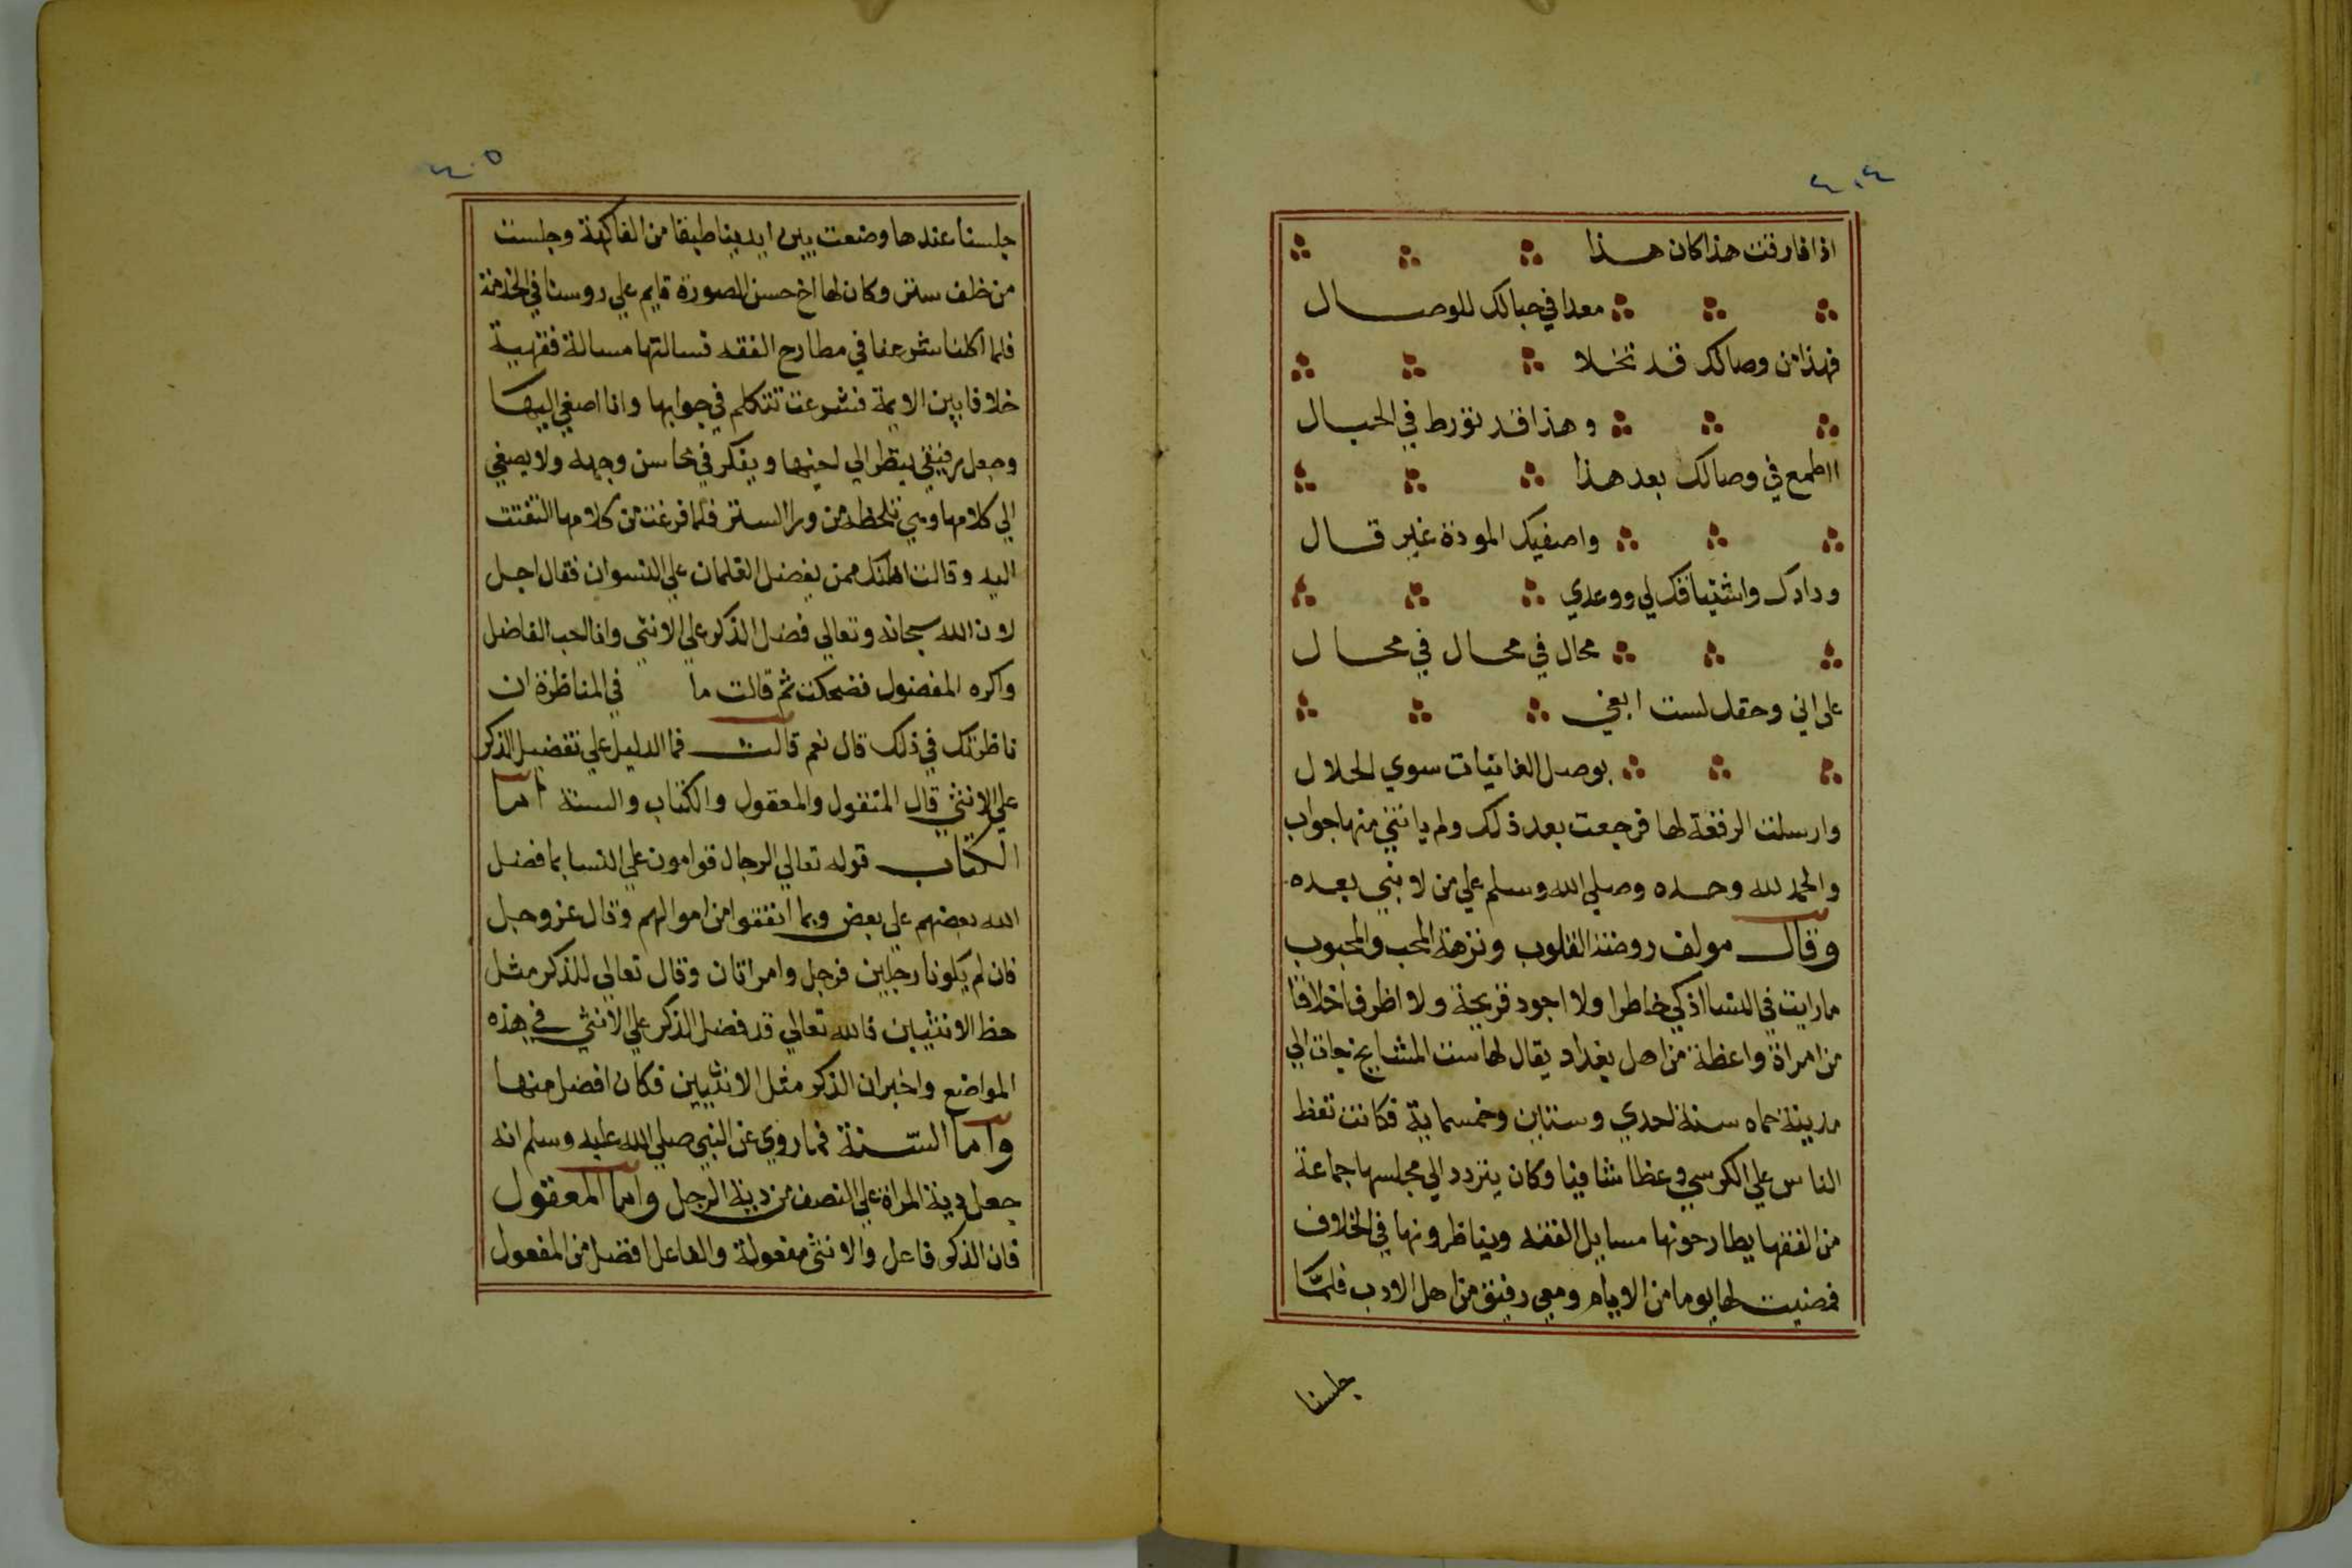 ٤٠٤
اذا فارقت هذا كان هذا
معدا في حبالك للوصال
فهذا من وصالك قد تخلا
وهذا قد تورط في الحبال
ااطمع في وصالك بعد هذا
واصفيك المودة غير قال
ودادك واشتياقك لي ووعدي
محال في محال في محال
على اني وحقك لست ابغي
بوصل الغانيات سوي الحلال
وارسلت الرقعة لها فرجعت بعد ذلك ولم ياتني منها جواب
والحمد لله وحده وصلي الله وسلم علي من لا نبي بعده
وقال مولف روضة القلوب ونزهة المحب والمحبوب
ما رايت في النسا اذكي خاطرا ولا اجود قريحة ولا اظرف اخلاقا
من امراة واعظة من اهل بغداد يقال لها ست المشايخ جات الي
مدينة حماه سنة احدي وستين وخمسماية فكانت تعظ
الناس علي الكرسي وعظا شافيا وكان يتردد الي مجلسها جماعة
من الفقها يطارحونها مسايل الفقه ويناظرونها في الخلاف
فمضيت لها يوما من الايام ومعي رفيق من اهل الادب فلما
جلسنا
٤٠٥
جلسنا عندها وضعت بين ايدينا طبقا من الفاكهة وجلست
من خلف ستر وكان لها اخ حسن الصورة قايم علي روسنا في الخدمة
فلما اكلنا شرعنا في مطارح الفقه فسالتها مسالة فقهية
خلافا بين الايمة فشرعت تتكلم في جوابها وانا اصغي اليها
وجعل رفيقي ينظر الي اخيها ويفكر في محاسن وجهه ولا يصغي
الي كلامها وهي تلحظه من ورا الستر فلما فرغت من كلامها التفتت
اليه وقالت اظنك ممن يفضل الغلمان علي النسوان فقال اجل
لان الله سبحانه وتعالي فضل الذكر علي الانثي وانا احب الفاضل
واكره المفضول فضحكت ثم قالت ما في المناظرة ان
ناظرتك في ذلك قال نعم قالت فما الدليل علي تفضيل الذكر
علي الانثي قال المنقول والمعقول والكتاب والسنة اما
الكتاب قوله تعالي الرجال قوامون علي النسا بما فضل
الله بعضهم على بعض وبما انفقوا من اموالهم وقال عز وجل
فان لم يكونا رجلين فرجل وامراتان وقال تعالي للذكر مثل
حظ الانثيين فالله تعالي قد فضل الذكر علي الانثي في هذه
المواضع واخبر ان الذكر مثل الانثيين فكان افضل منها
واما السنة فما روي عن النبي صلي الله عليه وسلم انه
جعل دية المراة علي النصف من دية الرجل واما المعقول
فان الذكر فاعل والانثى مفعولة والفاعل افضل من المفعول